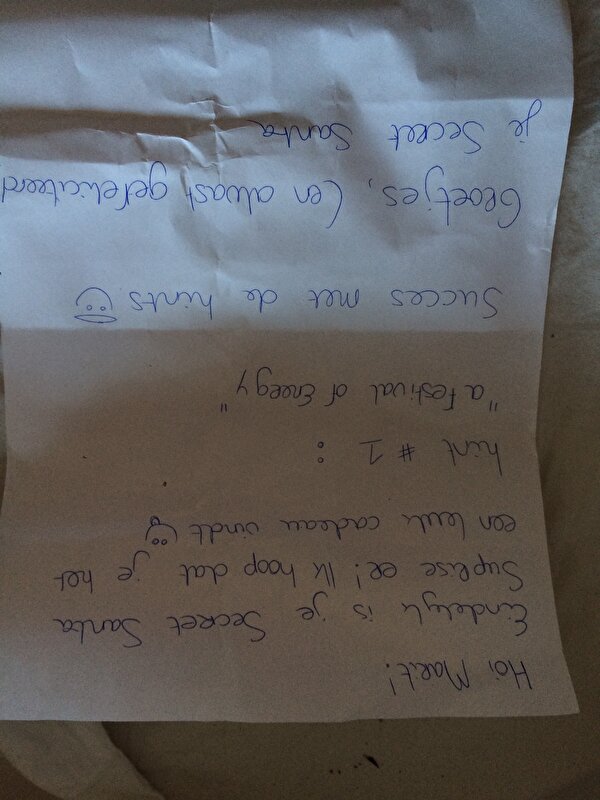 Hoi Marit!
Eindelijk is je Secret Santa
Suprise er! Ik hoop dat je het
een leuk cadeau vindt
hint #1 :
"a festival of Energy"
Succes met de hints
Groetjes, (en alvast gefeliciteerd
je Secret Santa